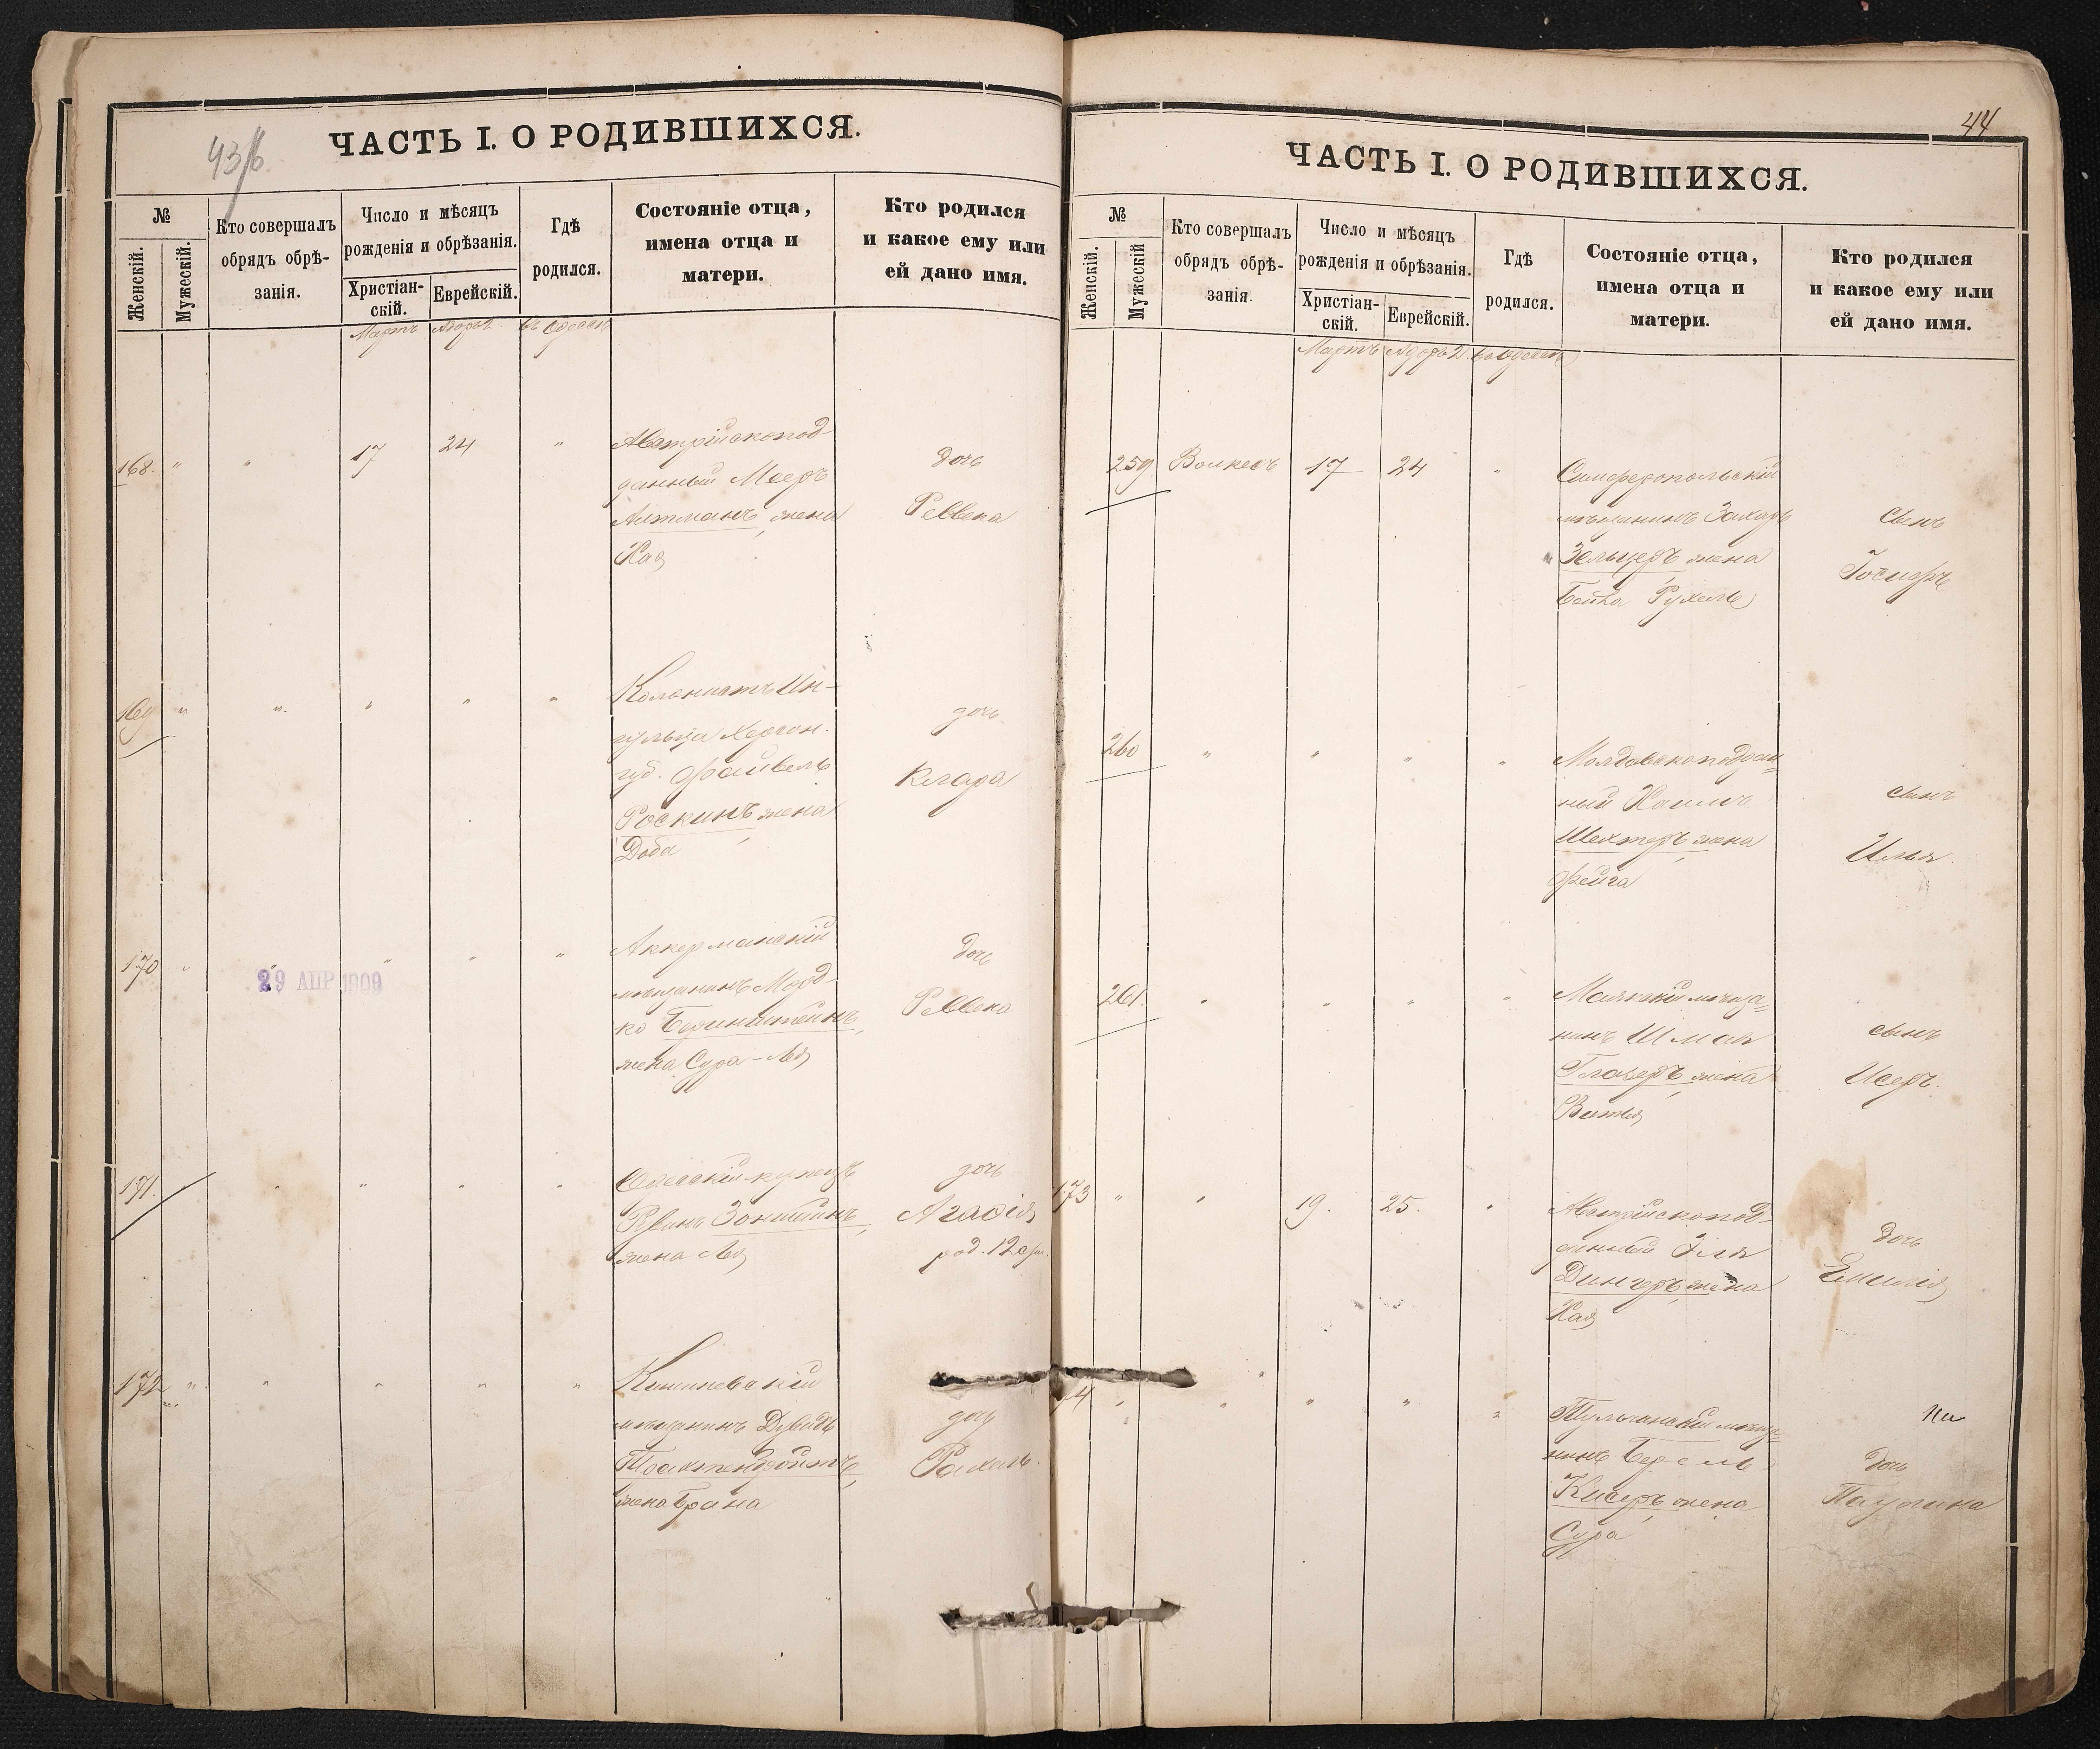 43/б
ЧАСТЬ I. О РОДИВШИХСЯ.
№
Женскій.
Мужескій.
Кто совершалъ
обрядъ обрѣ-
занія.
Число и мѣсяцъ
рожденія и обрѣзанія.
Христіан-
скій.
Еврейскій.
Гдѣ
родился.
Состояніе отца,
имена отца и
матери.
Кто родился
и какое ему или
ей дано имя.
Мартъ Адоръ 2. въ Одессѣ
168. " " 17 24 "
Австрійскопод-
данный Мееръ
Алтманъ, жена
Хая
дочь
Ревека
169 " " " " "
Колонистъ Ин-
гульца Херсон.
губ. Файвель
Роскинъ, жена
Доба
дочь
Клара
170 " " " " "
29 АПР 1909
Аккерманскій
мѣщанинъ Морд-
ко Беринштейнъ,
жена Сура-Лея
дочь
Ревека
171. " " " " "
Одесскій купецъ
Рувинъ Зонштейнъ,
жена Лея
дочь
род. 12
172 " " " " "
Кишиневскій
мѣщанинъ Дувидъ
жена Брана
дочь
Рахиль.
44
ЧАСТЬ I. О РОДИВШИХСЯ.
№
Женскій.
Мужескій
Кто совершалъ
обрядъ обрѣ-
занія
Число и мѣсяцъ
рожденія и обрѣзанія.
Христіан-
скій.
Еврейскій.
Гдѣ
родился.
Состояніе отца,
имена отца и
матери.
Кто родился
и какое ему или
ей дано имя.
Мартъ Адоръ 2. въ Одессѣ
259 Волкесъ 17 24 "
Симферопольскій
мѣщанинъ Захаръ
Зельцеръ, жена
Бейла Рухель
сынъ
Іосифъ
260 " " " "
Молдавскоподдан=
ный Хаимъ
Шехтеръ, жена
Фейга
сынъ
Илья.
261. " " " "
Маякскій мѣща=
нинъ Шмая
Глазеръ, жена
сынъ
Исеръ.
173 " " 19. 25. "
Австрійскопод-
данный Эля
Дингеръ, жена
Хая
дочь
Емилія
74 " " " " "
Тульчинскій мѣща=
нинъ Берель
Кисеръ, жена
Сура
дочь
Паулина